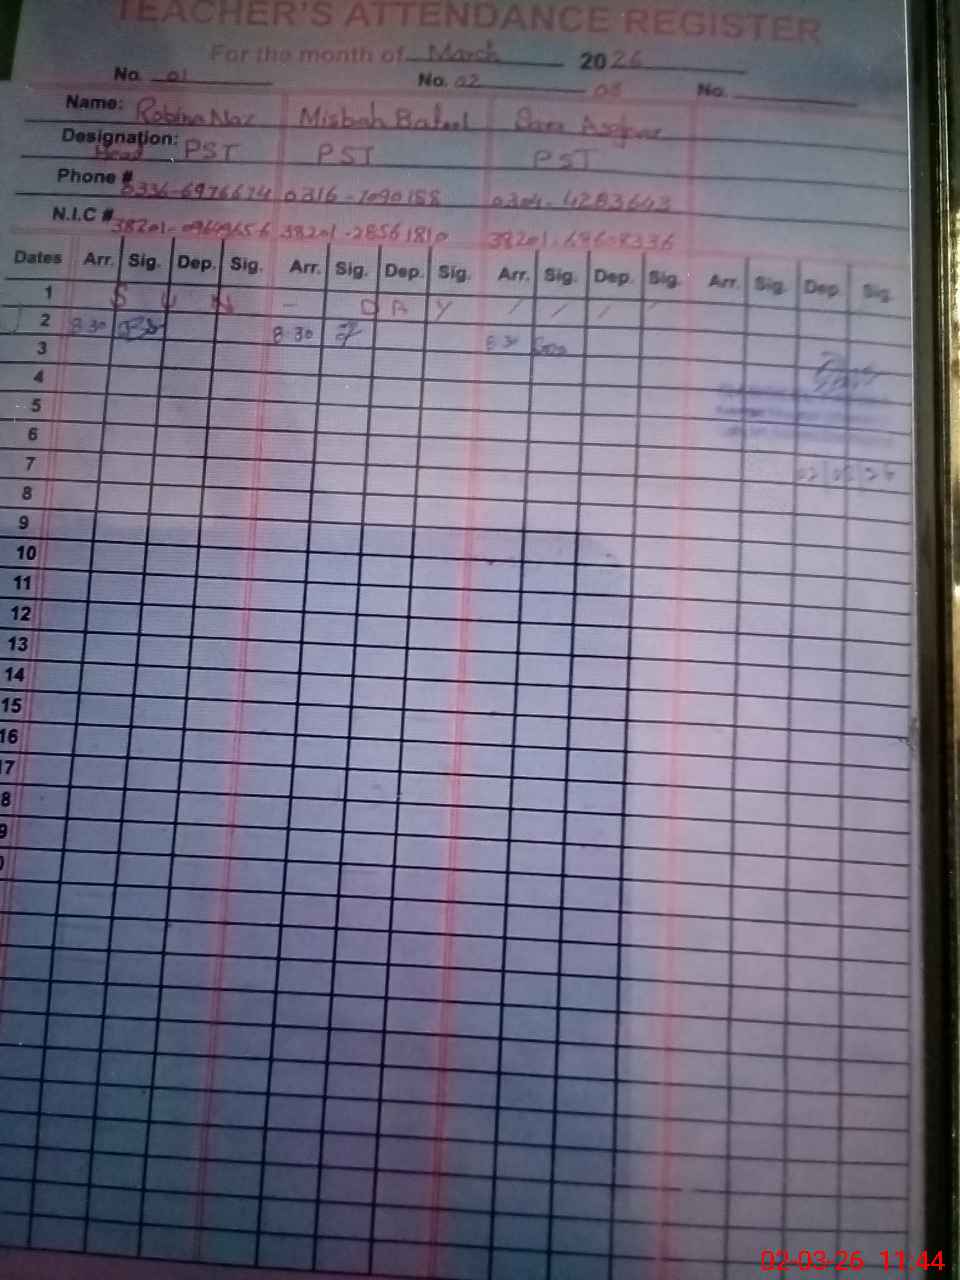 TEACHER'S ATTENDANCE REGISTER
For the month of March 2026
No. 01 No. 02 03 No.
Name: Robina Naz Misbah Batool Sara Asghar
Designation: Head PST PST PST
Phone # 0336-6976674 0316-7090158 0304-4283643
N.I.C # 38201-0969965-6 38201-2856181-0
Dates Arr. Sig. Dep. Sig. Arr. Sig. Dep. Sig. Arr. Sig. Dep. Sig. Arr. Sig. Dep. Sig.
1 S U N - D A Y / / / /
2 8:30 8:30 8:30
3
4
5
6
7
8
9
10
11
12
13
14
15
16
17
8
9
02-03-26 11:44